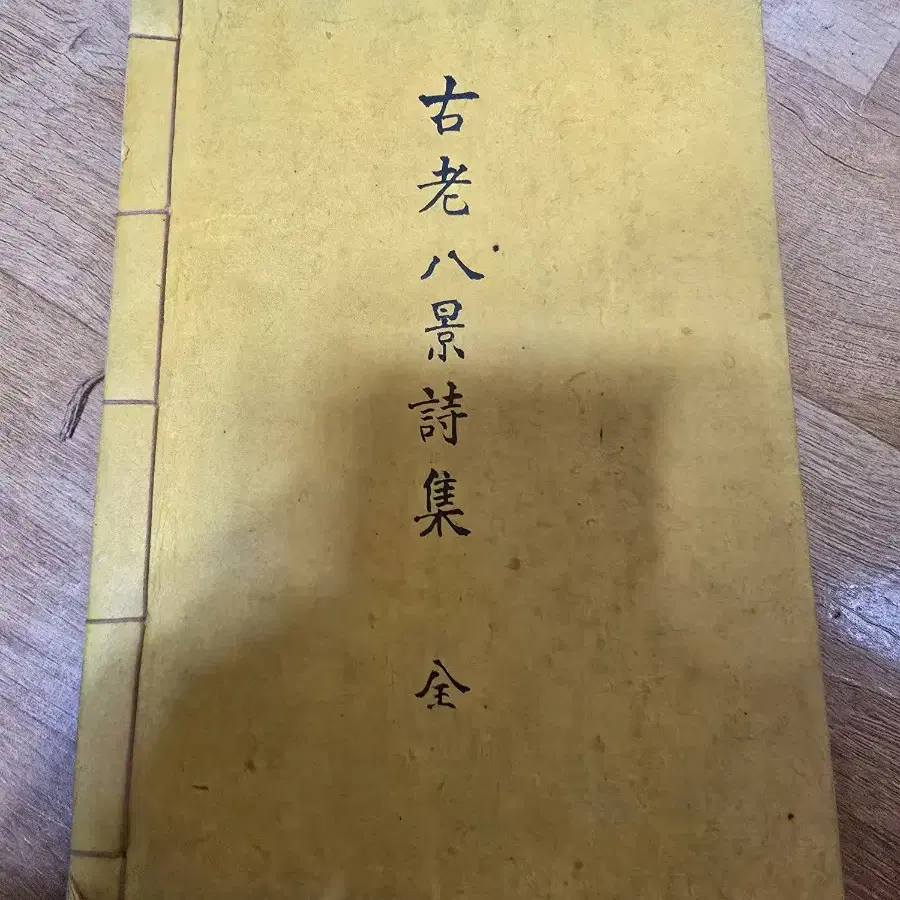 古老八景詩集 全